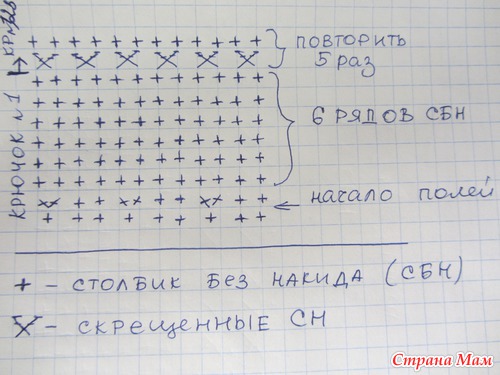 ПОВТОРИТЬ
5 РАЗ
6 РЯДОВ СБН
НАЧАЛО ПОЛЕЙ
КРЮЧОК №1
+ - СТОЛБИК БЕЗ НАКИДА (СБН)
- СКРЕЩЕННЫЕ СН
Страна Мам